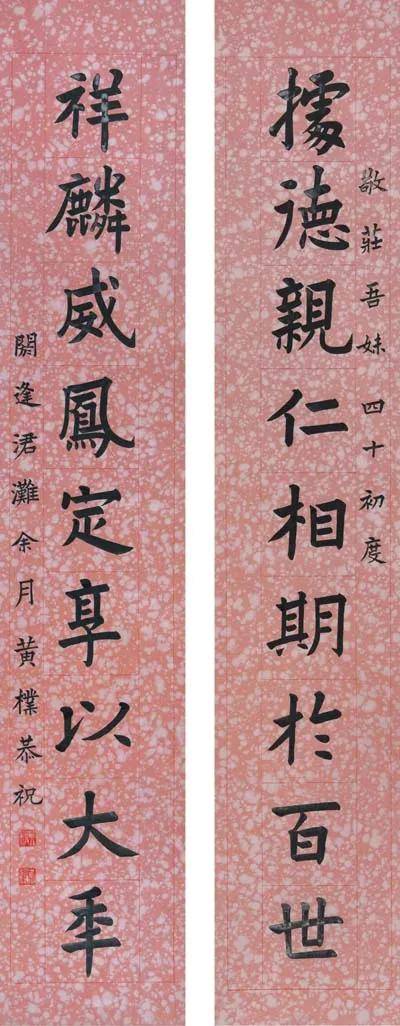 敬莊吾妹四十初度
據德親仁相期於百世
祥麟威鳳定享以大秊
閼逢涒灘余月黃樸恭祝